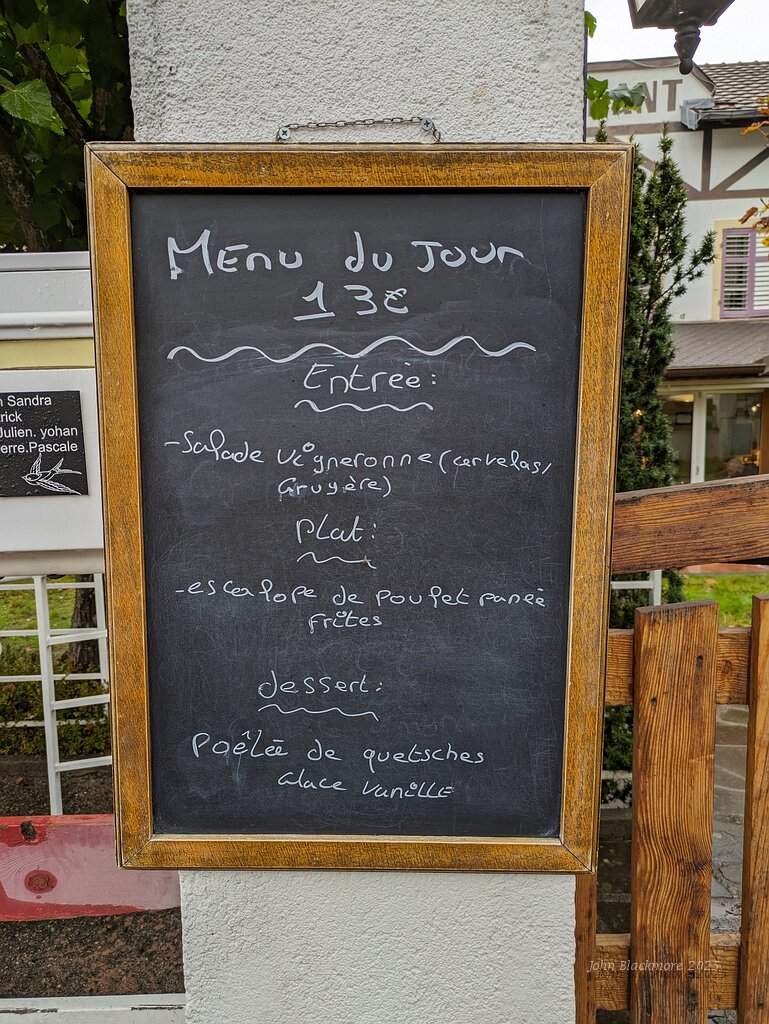 MENU du JOUr
13€
Entrée:
-Salade vigneronne (cervelas/
Gruyère)
Plat:
-escalope de poulet panée
frîtes
dessert:
Poêlée de quetsches
Glace vanille
Sandra
rick
Julien. yohan
erre.Pascale
NT
John Blackmore 2025